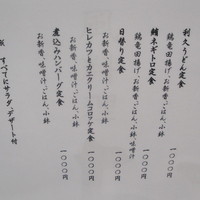 利久うどん定食
鶏竜田揚げ、お新香、ごはん、小鉢
一〇〇〇円
鮪ネギトロ定食
鶏竜田揚げ、お新香、ごはん、小鉢、味噌汁
一〇〇〇円
日替り定食
お新香、味噌汁、ごはん、小鉢
一〇〇〇円
ヒレカツとカニクリームコロッケ定食
お新香、味噌汁、ごはん、小鉢
一〇〇〇円
煮込みハンバーグ定食
お新香、味噌汁、ごはん、小鉢
一〇〇〇円
すべてにサラダ、デザート付